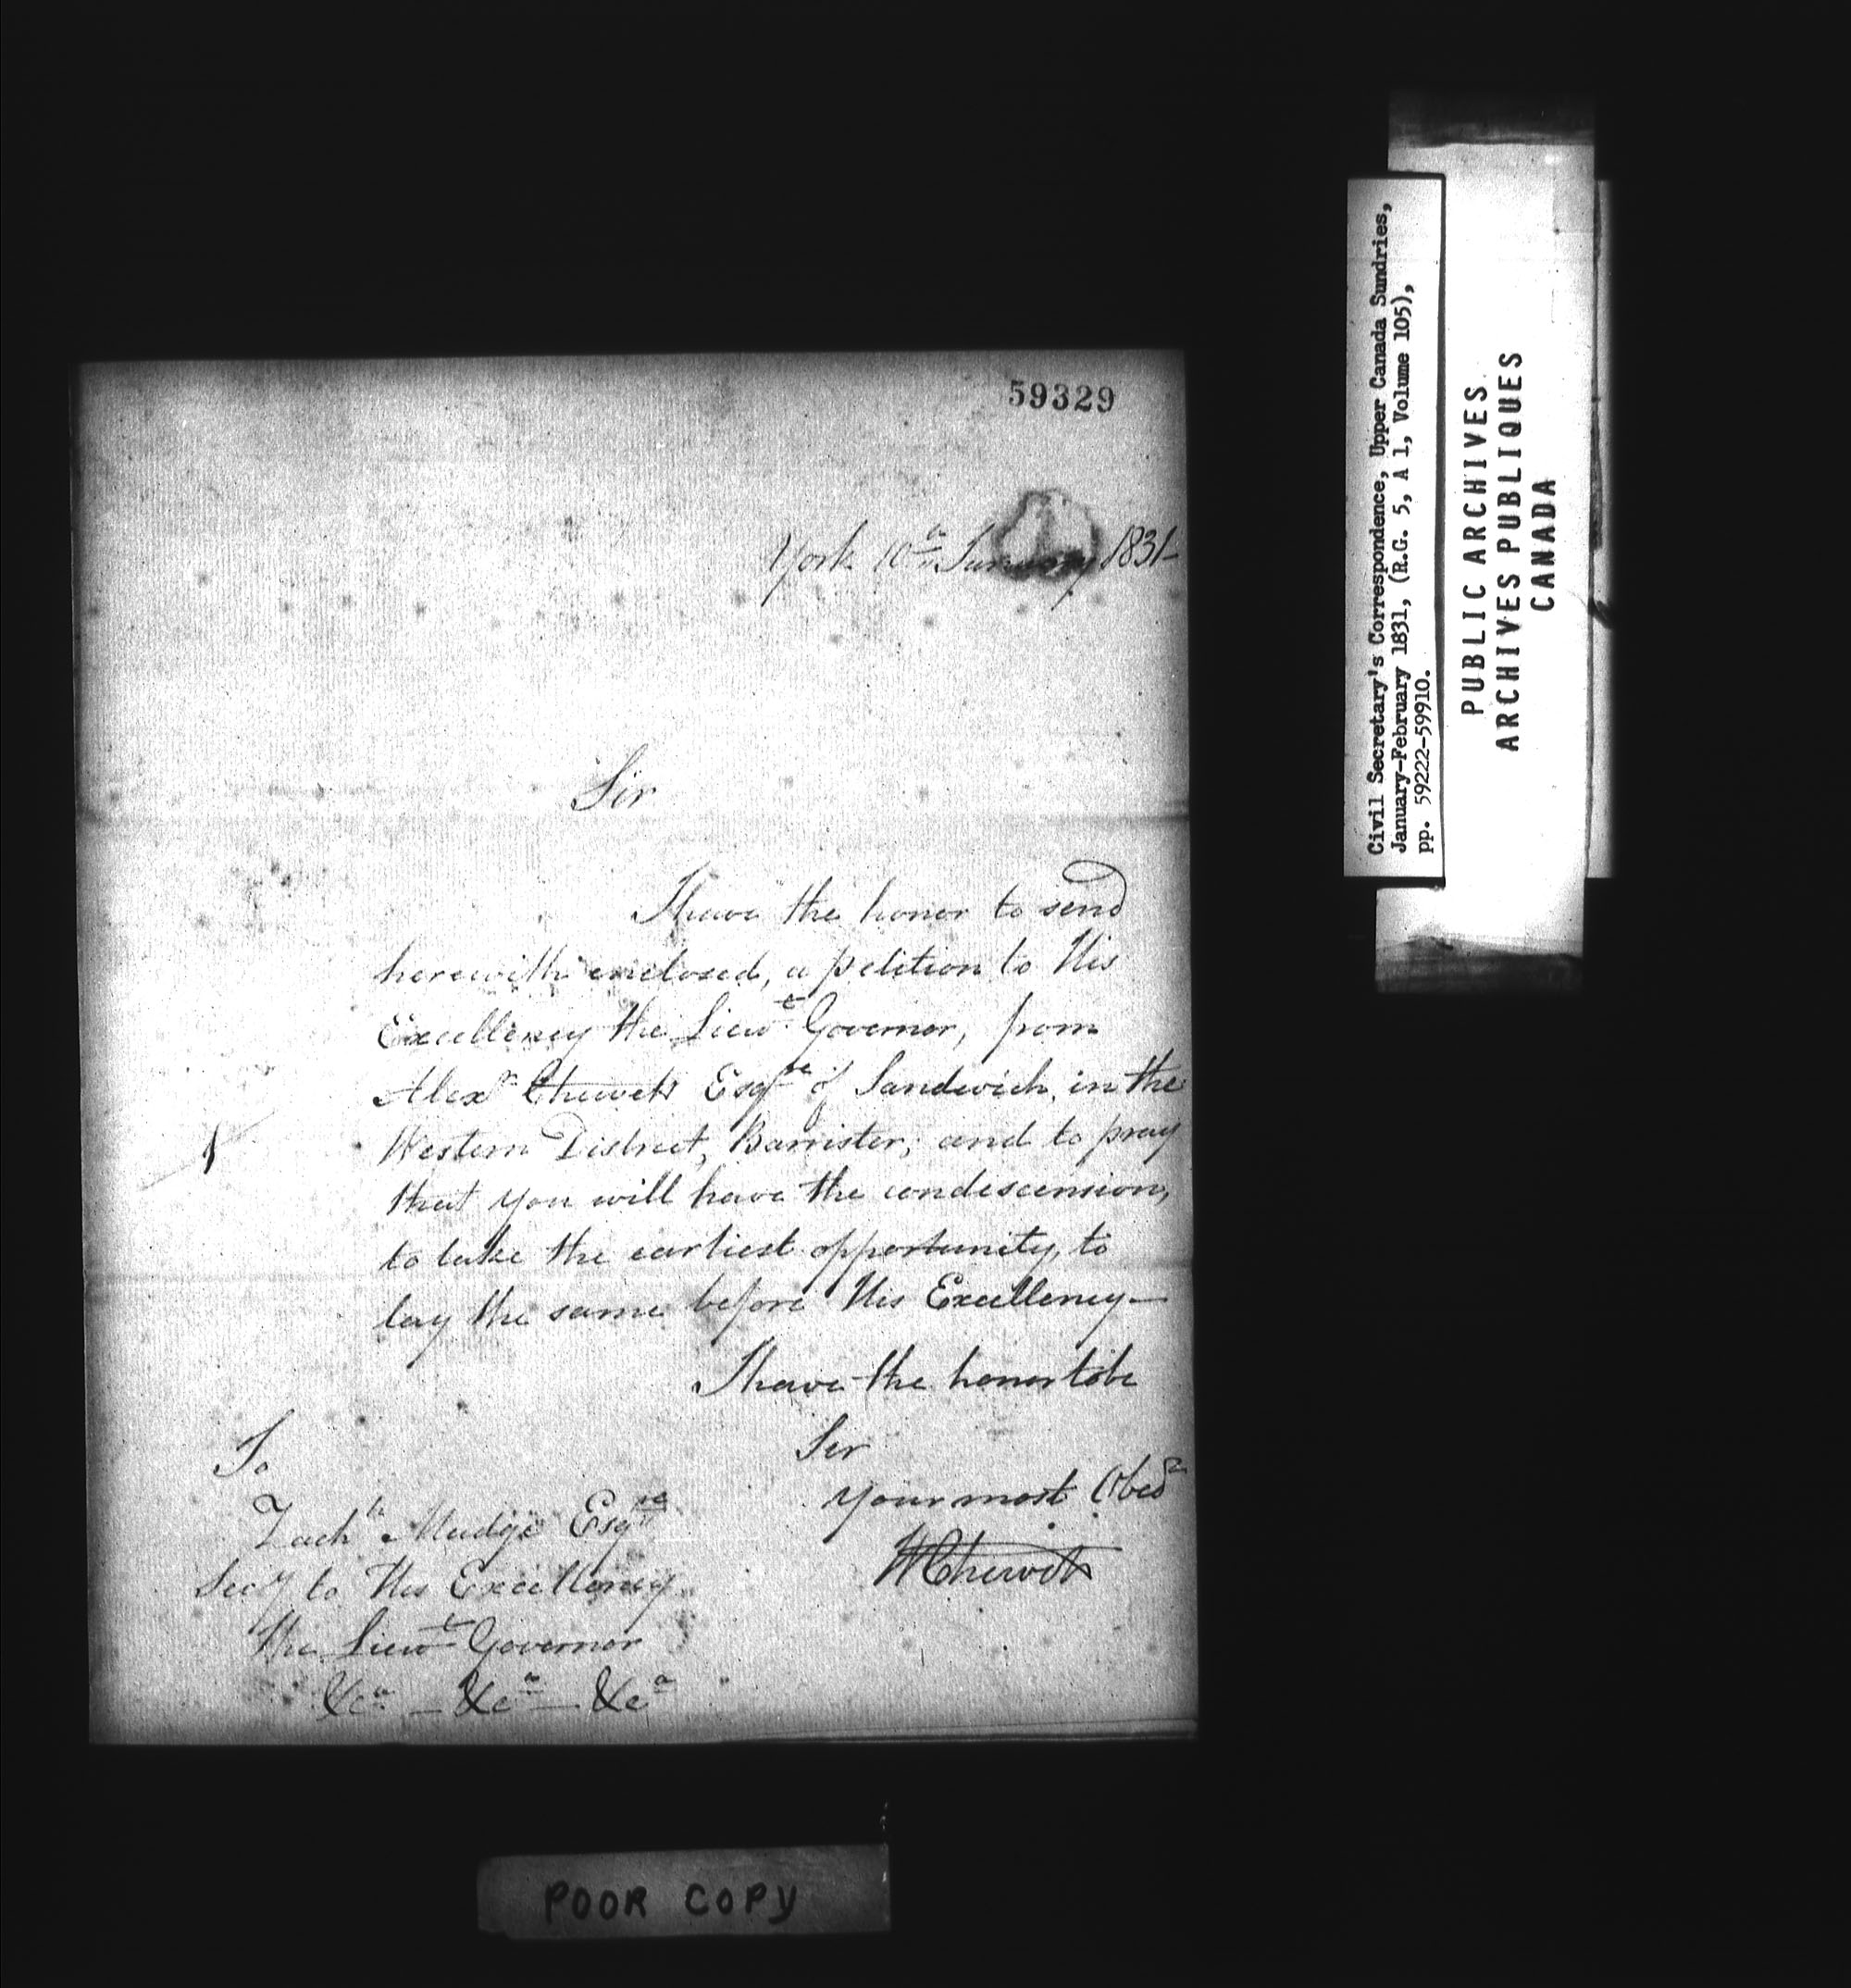 59329
York 10th January 1831-
Sir
I have the honor to send
herewith enclosed, a petition to His
Excellency the Lieut Governor, from
Alexr Chewett Esqre of Sandwich, in the
Western District, Barrister; and to pray
that you will have the condiscension,
to take the earliest opportunity, to
lay the same before His Excellency—
I have the honor to be
Sir
your most Obedt
WChewett
To
Zachh Mudge Esqre
Secy to His Excellency
the Lieut Governor
&ca — &ca — &ca
POOR COPY
Civil Secretary's Correspondence, Upper Canada Sundries,
January-February 1831, (R.G. 5, A 1, Volume 105),
pp. 59222-59910.
PUBLIC ARCHIVES
ARCHIVES PUBLIQUES
CANADA